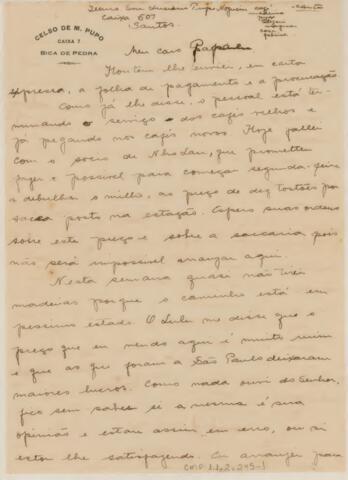 CELSO DE M. PUPO
CAIXA 7
BICA DE PEDRA
Caixa 607
Santos
Meu caro Papae
Hontem lhe enviei, em carta
expressa, a folha de pagamento e a procuração.
Como já lhe disse, o pessoal está ter-
minando o serviço dos cafés velhos e
já pegando nos cafés novos. Hoje fallei
com o socio de Nho Lau, que prometteu
fazer o possivel para começar segunda-feira
a debulha o milho, ao preço de dez tostões por
sacca posto na estação. Espero suas ordens
sobre este preço e sobre a saccaria pois
não será impossivel arranjar aqui.
Nesta semana quasi não tirei
madeiras porque o caminho está em
pessimo estado. O Lulu me disse que o
preço que eu vendo aqui é muito ruim
e que as que foram a São Paulo deixaram
maiores lucros. Como nada ouvi do Senhor,
fico sem saber si a mesma é sua
opinião e estou assim em erro, ou si
estou lhe satisfazendo. Eu arranjei para
CMP 1.1.2.245-1